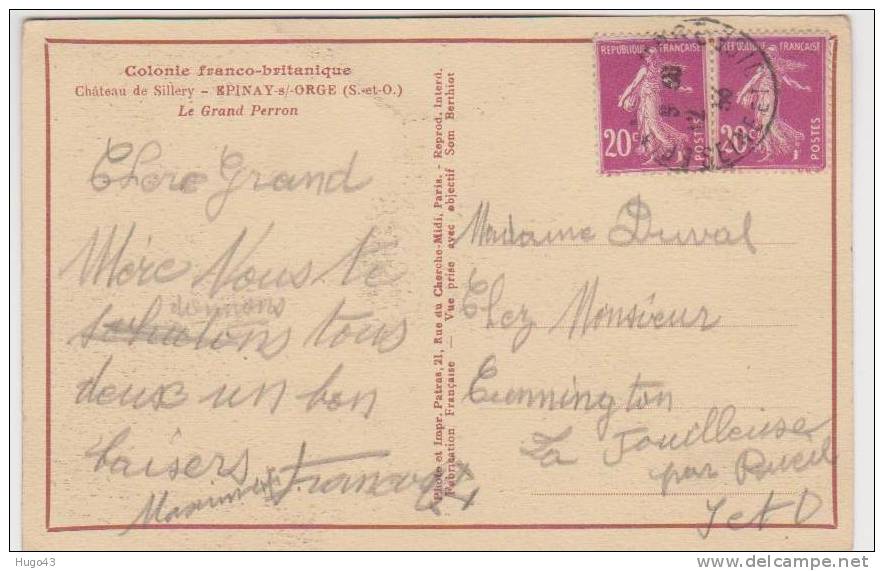 Colonie franco-britanique
Château de Sillery - EPINAY-s/-ORGE (S.-et-O.)
Le Grand Perron
Chere Grand
Mère Nous te
donnons
souhaitons tous
deux un bon
baisers
François
Photo et Impr. Patras, 21, Rue du Cherche-Midi, Paris. - Reprod. Interd.
Fabrication Française — Vue prise avec objectif Som Berthiot
REPUBLIQUE FRANÇAISE
20c
POSTES
REPUBLIQUE FRANÇAISE
20c
POSTES
Madame Duval
Chez Monsieur
Cunnington
La Fouilleuse
par Rueil
S et O
Hugo43
www.delcampe.net